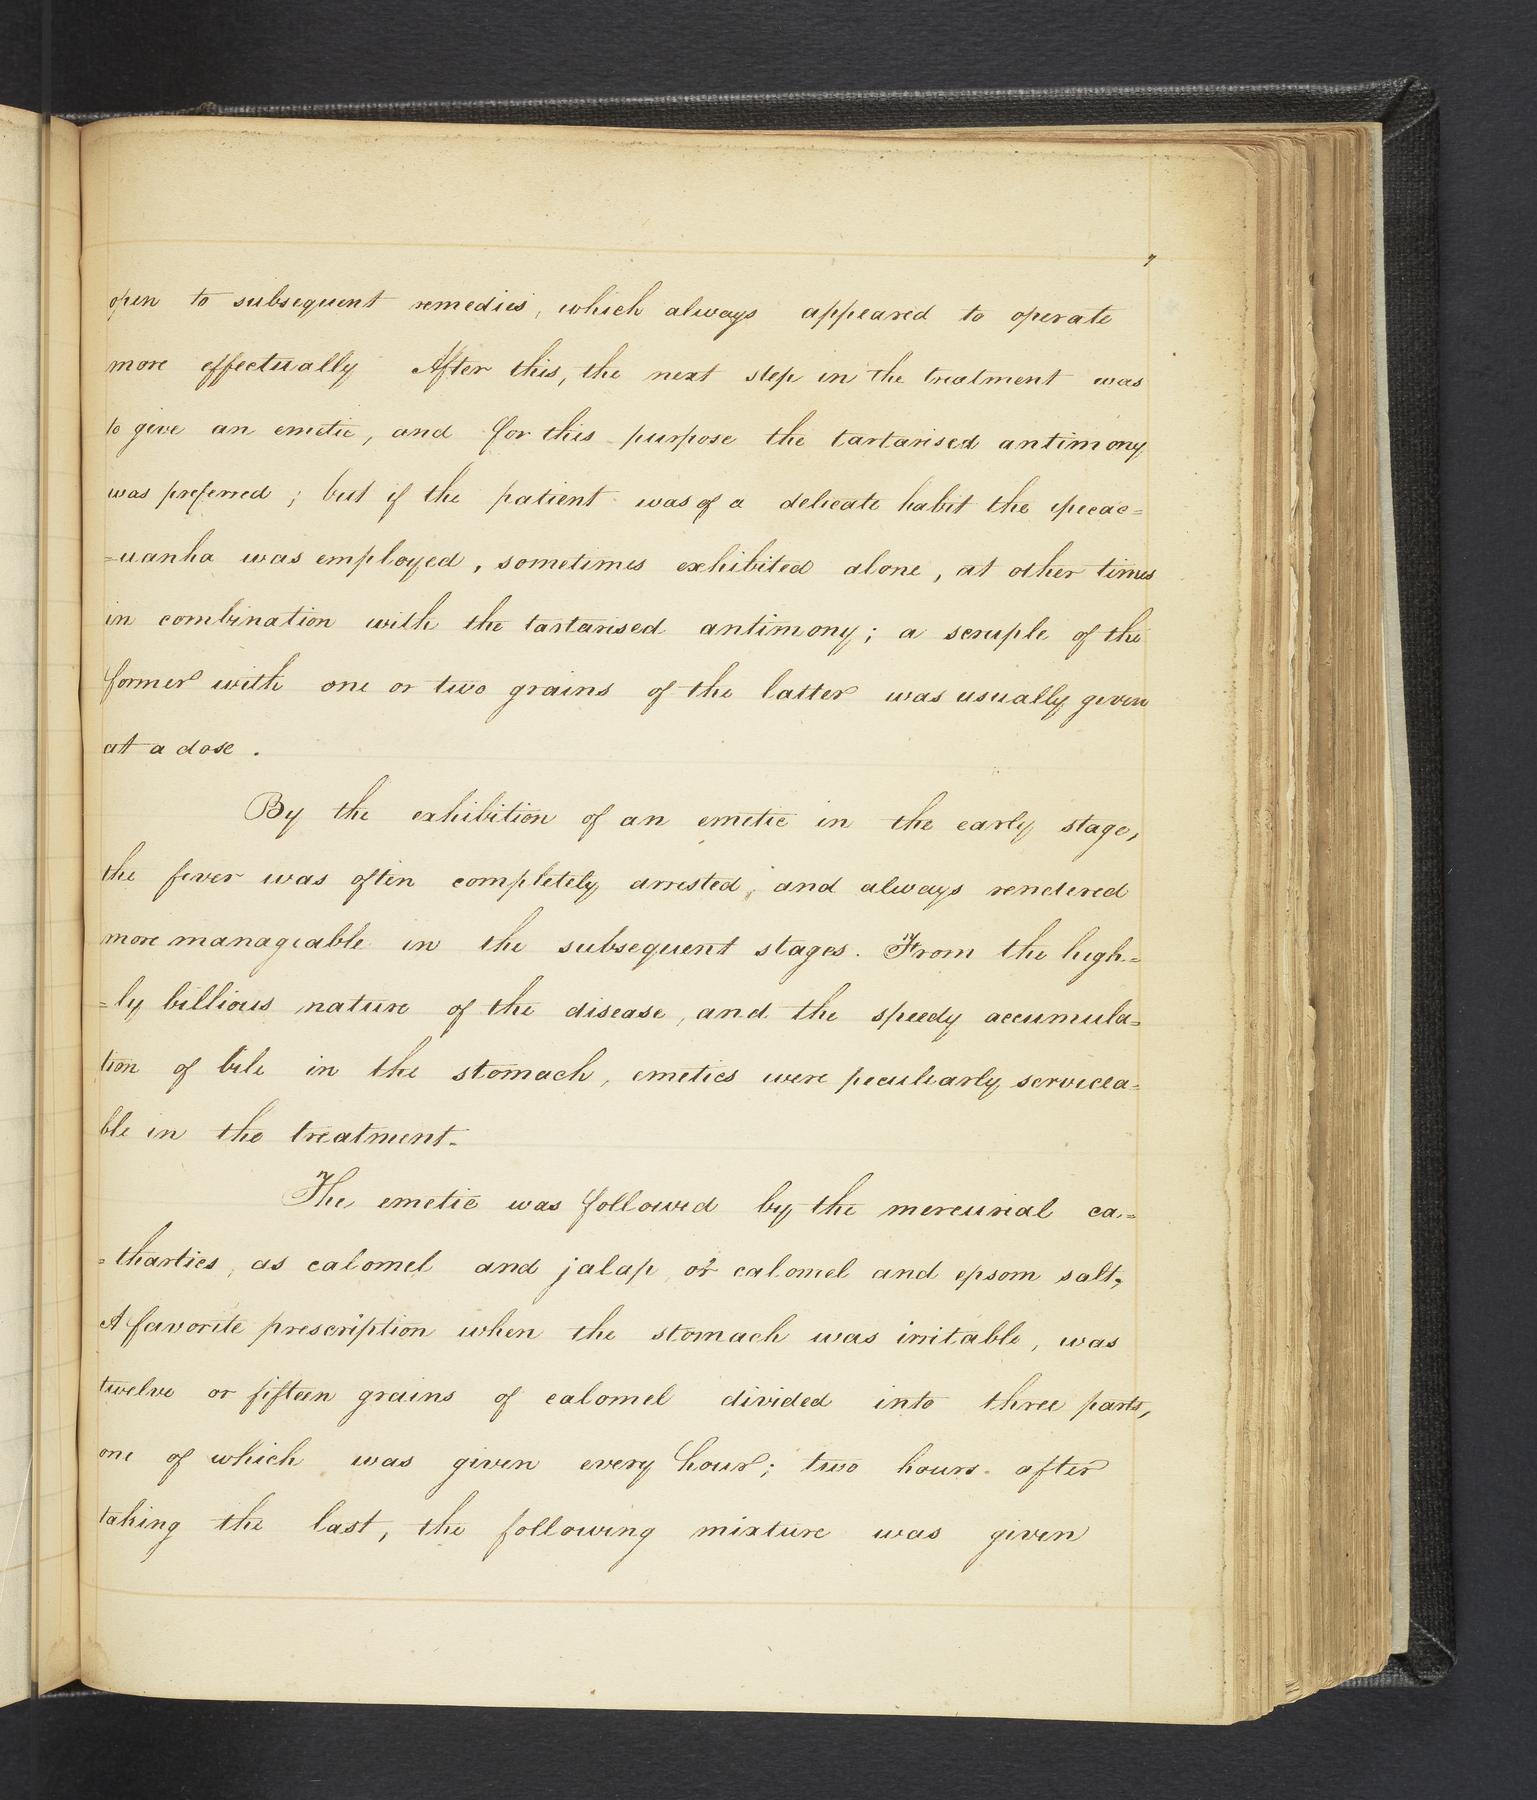 7
open to subsequent remedies, which always appeared to operate
more effectually After this, the next step in the treatment was
to give an emetic, and for this purpose the tartarised antimony
was preferred; but if the patient was of a delicate habit the ipecac=
=uanha was employed, sometimes exhibited alone, at other times
in combination with the tartarised antimony; a scruple of the
former with one or two grains of the latter was usually given
at a dose.
By the exhibition of an emetic in the early stage,
the fever was often completely arrested, and always rendered
more manageable in the subsequent stages. From the high=
=ly billious nature of the disease, and the speedy accumula=
tion of bile in the stomach, emetics were peculiarly servicea=
ble in the treatment.
The emetic was followed by the mercurial ca=
=thartics, as calomel and jalap, or calomel and epsom salt;
A favorite prescription when the stomach was irritable, was
twelve or fifteen grains of calomel divided into three parts,
one of which was given every hour; two hours after
taking the last, the following mixture was given